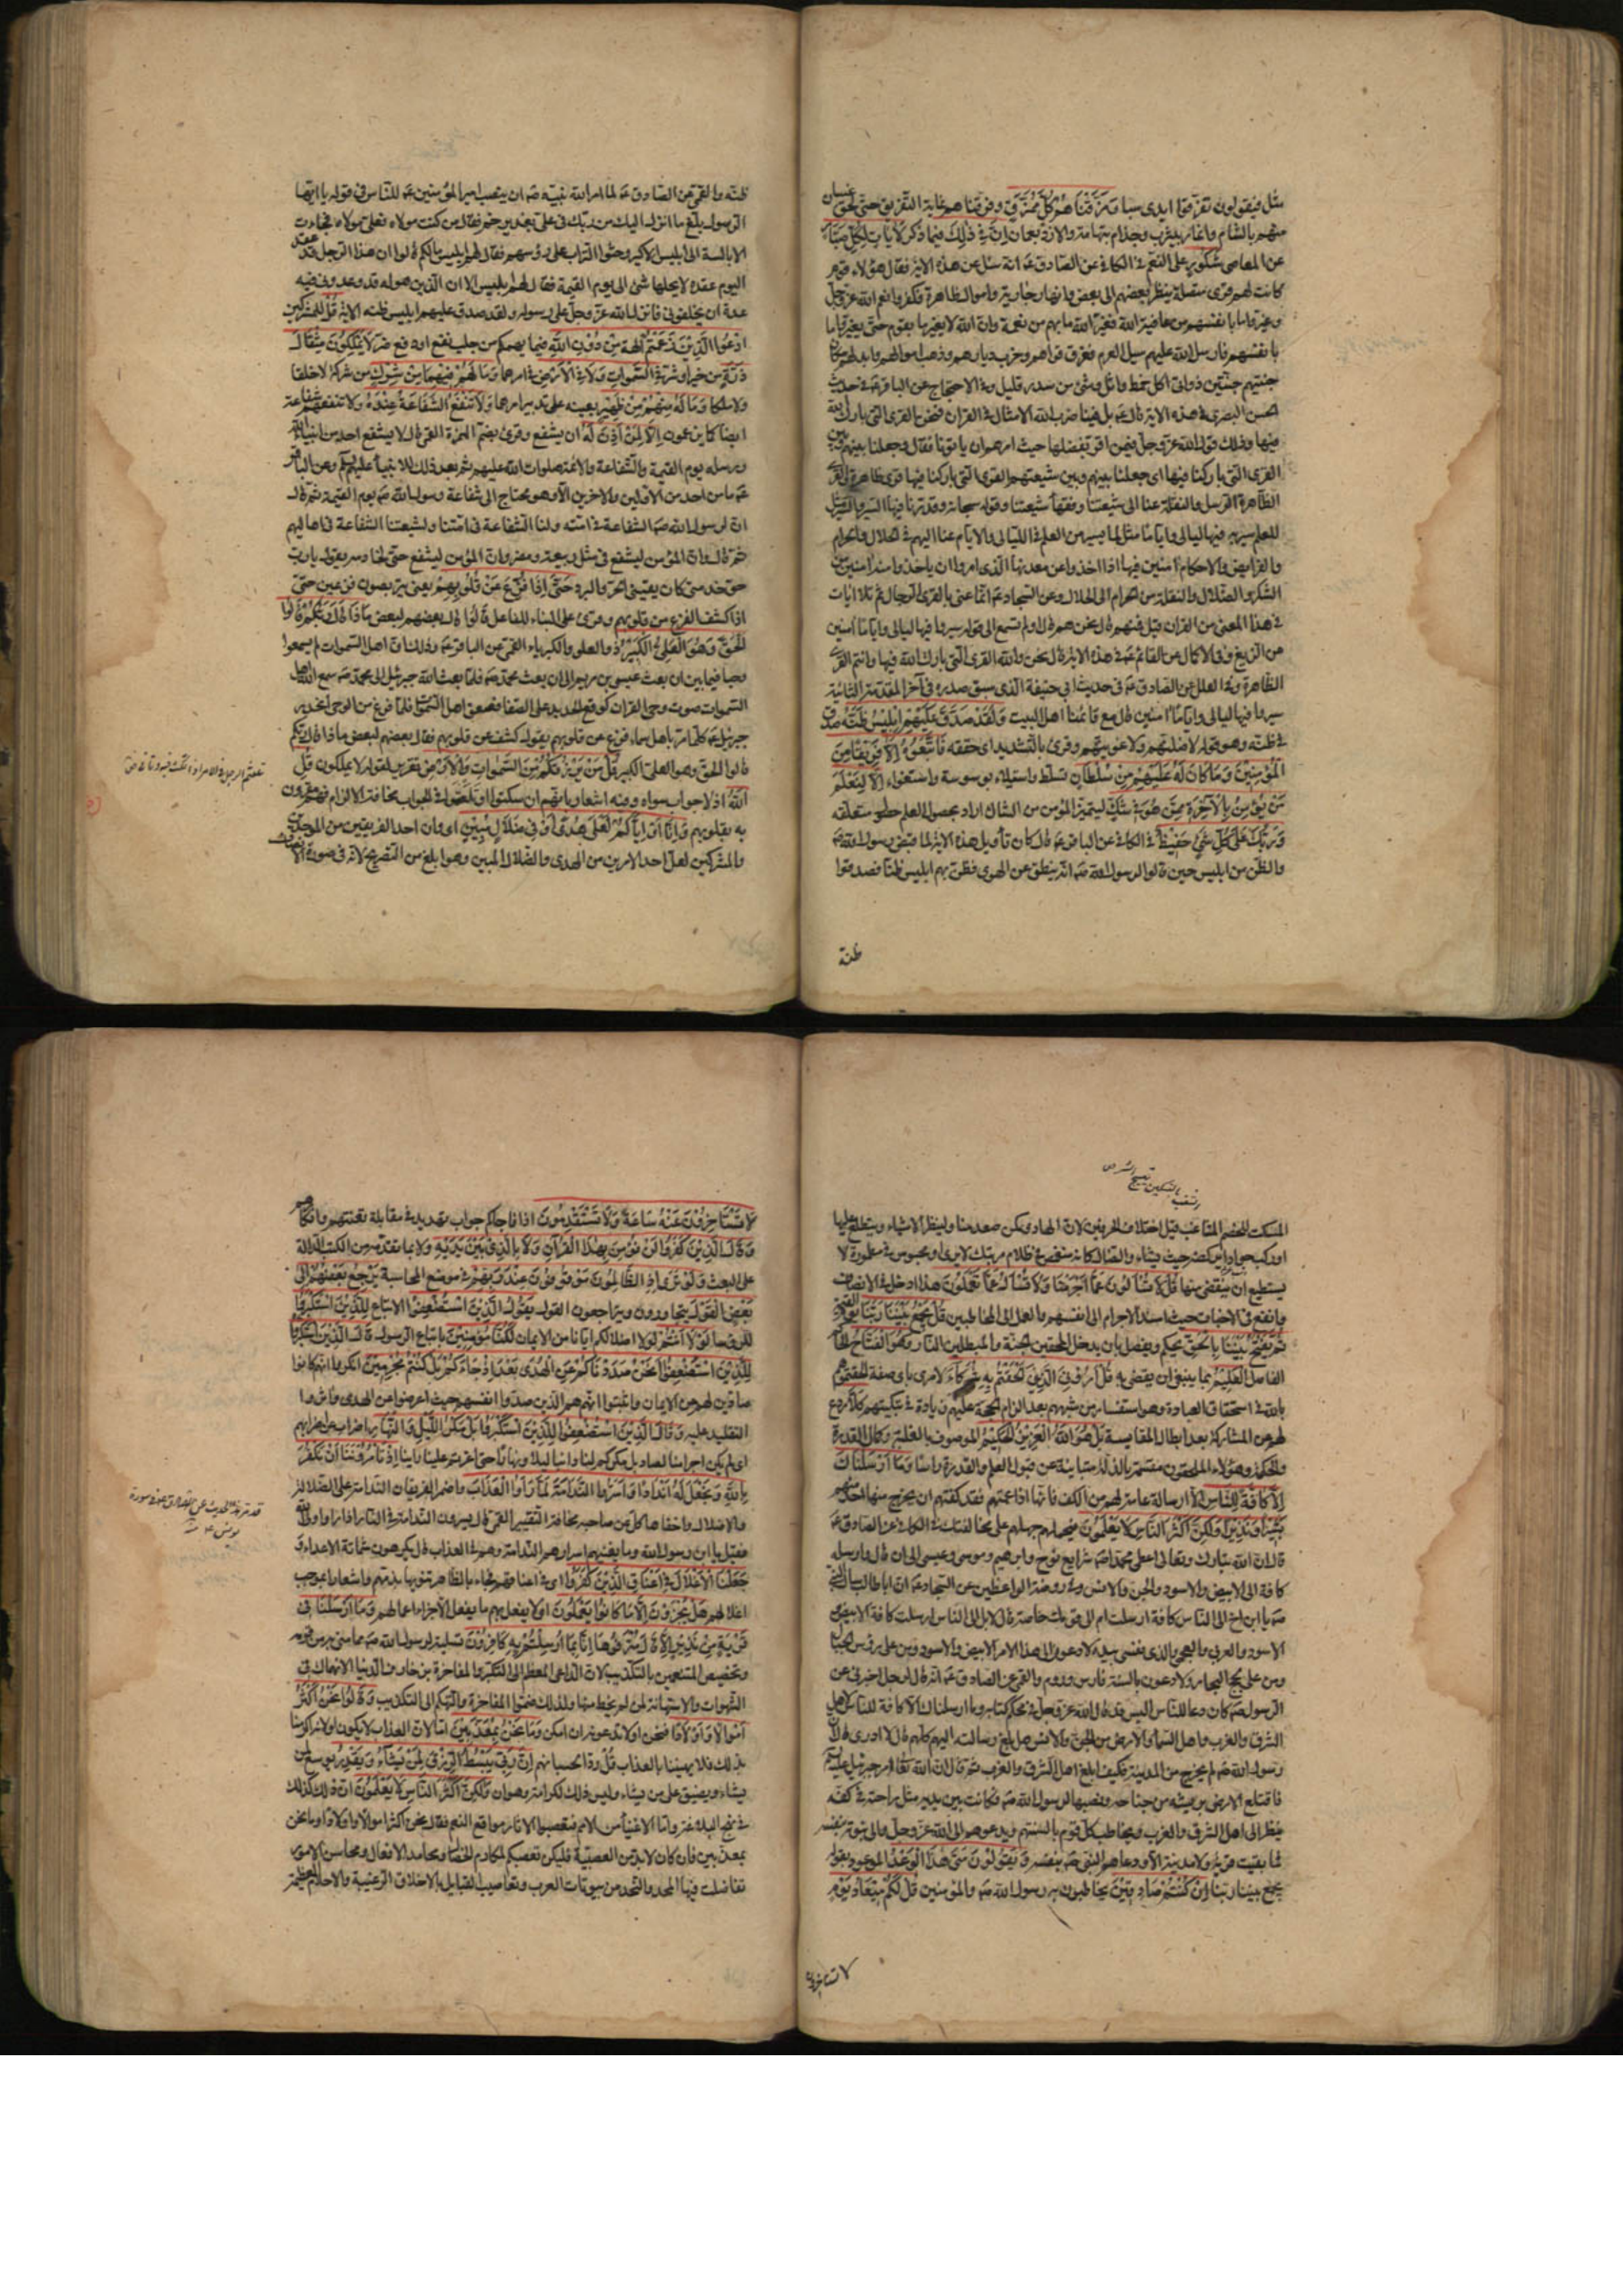 مثل فيقولون تفرّقوا ايدى سبا وَمَزَّقْنَاهُمْ كُلَّ مُمَزَّقٍ وفرّقناهم غاية التفريق حتى لحق غسان
منهم بالشام وانمار بيثرب وجذام بتهامة والازد بعمان إِنَّ فِي ذلِكَ فيما ذكر لَآيَاتٍ لِكُلِّ صَبَّارٍ
عن المعاصى شَكُورٍ على النعم فى الكافى عن الصادق عَـ انه سئل عن هذه الاية فقال هؤلاء قوم
كانت لهم قرى متصلة ينظر بعضهم الى بعض وانهار جارية واموال ظاهرة فكفروا نعم الله عزّ وجلّ
وغيّروا ما بانفسهم من عافية الله فغيّر الله ما بهم من نعمة وانّ الله لا يغيّر ما بقوم حتى يغيّروا ما
بانفسهم فارسل الله عليهم سيل العرم فغرّق قراهم وخرّب ديارهم وذهب اموالهم وابدلهم مكان
جنتيهم جنتين ذواتى اكل خمط واثل وشئ من سدر قليل وفى الاحتجاج عن الباقر عَـ فى حديث
الحسن البصرى فى هذه الاية قال عَـ بل فينا ضرب الله الامثال فى القران فنحن القرى التى بارك الله
فيها وذلك قول الله عزّ وجلّ فيمن اقرّ بفضلنا حيث امرهم ان ياتونا فقال وجعلنا بينهم وبين
القرى التى باركنا فيها اى جعلنا بينهم وبين شيعتهم القرى التى باركنا فيها قرى ظاهرة والقرى
الظاهرة الرسل والنقلة عنا الى شيعتنا وفقهاء شيعتنا وقوله سبحانه وقدّرنا فيها السير والسير مثل
للعلم سير به فيها ليالى واياما مثل لما يسير من العلم فى الليالى والايام عنا اليهم فى الحلال والحرام
والفرايض والاحكام امنين فيها اذا اخذوا عن معدنها الذى امروا ان ياخذوا منه امنين من
الشكّ والضلال والنقلة من الحرام الى الحلال وعن السجاد عَـ انما عنى بالقرى الرجال ثم تلا ايات
فى هذا المعنى من القران قيل فمن هم قال نحن هم قال اولم تسمع الى قوله سيروا فيها ليالى واياما امنين
من الزيغ وفى الاكمال عن القائم عَـ فى هذه الاية قال نحن والله القرى التى بارك الله فيها وانتم القرى
الظاهرة وفى العلل عن الصادق عَـ فى حديث ابى حنيفة الذى سبق صدره فى آخر المقدمة الثانية
سيروا فيها ليالى واياما امنين قال مع قائمنا اهل البيت وَلَقَدْ صَدَّقَ عَلَيْهِمْ إِبْلِيسُ ظَنَّهُ صدق
فى ظنه وهو قوله لاضلنهم ولاغوينهم وقرئ بالتشديد اى حققه فَاتَّبَعُوهُ إِلَّا فَرِيقًا مِنَ
الْمُؤْمِنِينَ وَمَا كَانَ لَهُ عَلَيْهِمْ مِنْ سُلْطَانٍ تسلط واستيلاء بوسوسة واستغواء إِلَّا لِنَعْلَمَ
مَنْ يُؤْمِنُ بِالْآخِرَةِ مِمَّنْ هُوَ فِي شَكٍّ ليتميّز المؤمن من الشاك اراد بحصول العلم حصول متعلقه
وَرَبُّكَ عَلَى كُلِّ شَيْءٍ حَفِيظٌ فى الكافى عن الباقر عَـ قال كان تأويل هذه الاية لما قبض رسول الله صَـ
والظن من ابليس حين قالوا لرسول الله صَـ انه ينطق عن الهوى فظن بهم ابليس ظنا فصدقوا
ظنه
ظنه والقمى عن الصادق عَـ لما امر الله نبيه صَـ ان ينصب امير المؤمنين عَـ للناس فى قوله يا ايها
الرسول بلّغ ما انزل اليك من ربك فى على بغدير خم فقال من كنت مولاه فعلى مولاه فجاءت
الابالسة الى ابليس الاكبر وحثوا التراب على رؤسهم فقال لهم ابليس ما لكم قالوا ان هذا الرجل قد عقد
اليوم عقدة لا يحلها شئ الى يوم القيمة فقال لهم ابليس كلا ان الذين حوله قد وعدونى فيه
عدة لن يخلفونى فانزل الله عزّ وجلّ على رسوله ولقد صدق عليهم ابليس ظنه الاية قُلْ للمشركين
ادْعُوا الَّذِينَ زَعَمْتُمْ الهة مِنْ دُونِ اللهِ فيما يهمكم من جلب نفع او دفع ضر لَا يَمْلِكُونَ مِثْقَالَ
ذَرَّةٍ من خير او شر فِي السَّمَوَاتِ وَلَا فِي الْأَرْضِ فى امرهما وَمَا لَهُمْ فِيهِمَا مِنْ شِرْكٍ من شركة لا خلقا
ولا ملكا وَمَا لَهُ مِنْهُمْ مِنْ ظَهِيرٍ يعينه على تدبير امرهما وَلَا تَنْفَعُ الشَّفَاعَةُ عِنْدَهُ ولا تنفعهم شفاعة
ايضا كما يزعمون إِلَّا لِمَنْ أَذِنَ لَهُ ان يشفع وقرئ بضم الهمزة القمى قال لا يشفع احد من انبياء الله
ورسله يوم القيمة والشفاعة وللائمة صلوات الله عليهم ثم بعد ذلك للانبياء عليهم السلام وعن الباقر
عَـ ما من احد من الاولين والاخرين الا وهو يحتاج الى شفاعة رسول الله صَـ يوم القيمة ثم قال
ان لرسول الله صَـ الشفاعة فى امته ولنا الشفاعة فى امتنا ولشيعتنا الشفاعة فى اهاليهم
ثم قال وان المؤمن ليشفع فى مثل ربيعة ومضر وان المؤمن ليشفع حتى لخادمه يقول يا رب
حق خدمتى كان يقينى الحر والبرد حَتَّى إِذَا فُزِّعَ عَنْ قُلُوبِهِمْ يعنى يتربصون فزعين حتى
اذا كشف الفزع عن قلوبهم وقرئ على البناء للفاعل قَالُوا قال بعضهم لبعض مَاذَا قَالَ رَبُّكُمْ قَالُوا
الْحَقَّ وَهُوَ الْعَلِيُّ الْكَبِيرُ ذو العلو والكبرياء القمى عن الباقر عَـ وذلك ان اهل السموات لم يسمعوا
وحيا فيما بين ان بعث عيسى بن مريم الى ان بعث محمد صَـ فلما بعث الله جبرئيل الى محمد صَـ سمع اهل
السموات صوت وحى القران كوقع الحديد على الصفا فصعق اهل السموات فلما فرغ من الوحى انحدر
جبرئيل عَـ كلما مرّ باهل سماء فزع عن قلوبهم يقول كشف عن قلوبهم فقال بعضهم لبعض ماذا قال ربكم
قالوا الحق وهو العلى الكبير قُلْ مَنْ يَرْزُقُكُمْ مِنَ السَّمَوَاتِ وَالْأَرْضِ تقرير لقوله لا يملكون قُلِ
اللهُ اذ لا جواب سواه وفيه اشعار بانهم ان سكتوا او تلعثموا فى الجواب مخافة الالزام فهم مقرّون
به بقلوبهم وَإِنَّا أَوْ إِيَّاكُمْ لَعَلَى هُدًى أَوْ فِي ضَلَالٍ مُبِينٍ اى وان احد الفريقين من الموحدين
والمشركين لعلى احد الامرين من الهدى والضلال المبين وهو ابلغ من التصريح لانه فى صورة الانصاف
المسكت للخصم المشاغب قيل اختلاف الحرفين لان الهادى كمن صعد منارا ينظر الاشياء ويتطلع عليها
او ركب جوادا يركضه حيث يشاء والضال كانه منغمس فى ظلام مرتبك لا يرى او محبوس فى مطمورة لا
يستطيع ان يتفصى منها قُلْ لَا تُسْأَلُونَ عَمَّا أَجْرَمْنَا وَلَا نُسْأَلُ عَمَّا تَعْمَلُونَ هذا ادخل فى الانصاف
وابلغ فى الاخبات حيث اسند الاجرام الى انفسهم والعمل الى المخاطبين قُلْ يَجْمَعُ بَيْنَنَا رَبُّنَا يوم القيمة
ثُمَّ يَفْتَحُ بَيْنَنَا بِالْحَقِّ يحكم ويفصل بان يدخل المحقين الجنة والمبطلين النار وَهُوَ الْفَتَّاحُ الحاكم
الفاصل الْعَلِيمُ بما ينبغى ان يقضى به قُلْ أَرُونِيَ الَّذِينَ أَلْحَقْتُمْ بِهِ شُرَكَاءَ لارى باى صفة الحقتموهم
بالله فى استحقاق العبادة وهو استفسار عن شبهتهم بعد الزام الحجة عليهم زيادة فى تبكيتهم كَلَّا ردع
لهم عن المشاركة بعد ابطال المقايسة بَلْ هُوَ اللهُ الْعَزِيزُ الْحَكِيمُ الموصوف بالغلبة وكمال القدرة
والحكمة وهؤلاء الملحقون متسمة بالذلة متابية عن قبول العلم والقدرة راسا وَمَا أَرْسَلْنَاكَ
إِلَّا كَافَّةً لِلنَّاسِ الا ارسالة عامة لهم من الكف فانها اذا عمّتهم فقد كفّتهم ان يخرج منها احد منهم
بَشِيرًا وَنَذِيرًا وَلَكِنَّ أَكْثَرَ النَّاسِ لَا يَعْلَمُونَ فيحملهم جهلهم على مخالفتك فى الكافى عن الصادق عَـ
قال ان الله تبارك وتعالى اعطى محمدا صَـ شرايع نوح وابرهيم وموسى وعيسى الى ان قال وارسله
كافة الى الابيض والاسود والجن والانس وفى روضة الواعظين عن السجاد عَـ ان ابا طالب سأل النبى
صَـ يا ابن اخ الى الناس كافة ارسلت ام الى قومك خاصة قال لا بل الى الناس ارسلت كافة الابيض
الاسود والعربى والعجمى والذى نفسى بيده لادعون الى هذا الامر الابيض والاسود ومن على رؤس الجبال
ومن على لجج البحار ولادعون بالسنة فارس وروم والقمى عن الصادق عَـ انه قال لرجل اخبرنى عن
الرسول صَـ كان دعا للناس اليس قد قال الله عزّ وجلّ فى محكم كتابه وما ارسلناك الا كافة للناس لاهل
الشرق والغرب واهل السماء والارض من الجن والانس هل بلّغ رسالته اليهم كلهم قال لا ادرى قال ان
رسول الله صَـ لم يخرج من المدينة فكيف ابلغ اهل الشرق والغرب ثم قال ان الله تعالى امر جبرئيل عليه السلم
فاقتلع الارض بريشة من جناحه ونصبها لرسول الله صَـ فكانت بين يديه مثل راحته فى كفه
ينظر الى اهل الشرق والغرب ويخاطب كل قوم بالسنتهم ويدعوهم الى الله عزّ وجلّ والى نبوته بنفسه
فما بقيت قرية ولا مدينة الا ودعاهم النبى صَـ بنفسه وَيَقُولُونَ مَتَى هَذَا الْوَعْدُ الموعود بقوله
يجمع بيننا ربنا إِنْ كُنْتُمْ صَادِقِينَ يخاطبون به رسول الله صَـ والمؤمنين قُلْ لَكُمْ مِيعَادُ يَوْمٍ
لا تستاخرون
لَا تَسْتَأْخِرُونَ عَنْهُ سَاعَةً وَلَا تَسْتَقْدِمُونَ اذا فاجاكم جواب تهديد فى مقابلة تعنتهم وانكارهم
وَقَالَ الَّذِينَ كَفَرُوا لَنْ نُؤْمِنَ بِهَذَا الْقُرْآنِ وَلَا بِالَّذِي بَيْنَ يَدَيْهِ ولا بما تقدمه من الكتب الدالة
على البعث وَلَوْ تَرَى إِذِ الظَّالِمُونَ مَوْقُوفُونَ عِنْدَ رَبِّهِمْ فى موضع المحاسبة يَرْجِعُ بَعْضُهُمْ إِلَى
بَعْضٍ الْقَوْلَ يتحاورون ويتراجعون القول يَقُولُ الَّذِينَ اسْتُضْعِفُوا الاتباع لِلَّذِينَ اسْتَكْبَرُوا
للرؤساء لَوْلَا أَنْتُمْ لولا اضلالكم ايانا عن الايمان لَكُنَّا مُؤْمِنِينَ باتباع الرسول قَالَ الَّذِينَ اسْتَكْبَرُوا
لِلَّذِينَ اسْتُضْعِفُوا أَنَحْنُ صَدَدْنَاكُمْ عَنِ الْهُدَى بَعْدَ إِذْ جَاءَكُمْ بَلْ كُنْتُمْ مُجْرِمِينَ انكروا انهم كانوا
صادين لهم عن الايمان واثبتوا انهم هم الذين صدوا انفسهم حيث اعرضوا عن الهدى واثروا
التقليد عليه وَقَالَ الَّذِينَ اسْتُضْعِفُوا لِلَّذِينَ اسْتَكْبَرُوا بَلْ مَكْرُ اللَّيْلِ وَالنَّهَارِ اضراب عن اضرابهم
اى لم يكن اجرامنا الصاد بل مكركم لنا دائبا ليلا ونهارا حتى اغرتم علينا راينا إِذْ تَأْمُرُونَنَا أَنْ نَكْفُرَ
بِاللهِ وَنَجْعَلَ لَهُ أَنْدَادًا وَأَسَرُّوا النَّدَامَةَ لَمَّا رَأَوُا الْعَذَابَ واضمر الفريقان الندامة على الضلالة
والاضلال واخفاها كل عن صاحبه مخافة التعيير القمى قال يسرون الندامة فى النار اذا راوا ولى الله
فقيل يا ابن رسول الله وما يغنيهم اسرارهم الندامة وهم فى العذاب قال يكرهون شماتة الاعداء وَ
جَعَلْنَا الْأَغْلَالَ فِي أَعْنَاقِ الَّذِينَ كَفَرُوا اى فى اعناقهم فجاء بالظاهر تنويها بذمهم واشعارا بموجب
اغلالهم هَلْ يُجْزَوْنَ إِلَّا مَا كَانُوا يَعْمَلُونَ اى لا يفعل بهم ما يفعل الا جزاء اعمالهم وَمَا أَرْسَلْنَا فِي
قَرْيَةٍ مِنْ نَذِيرٍ إِلَّا قَالَ مُتْرَفُوهَا إِنَّا بِمَا أُرْسِلْتُمْ بِهِ كَافِرُونَ تسلية لرسول الله صَـ مما منى به من قومه
وتخصيص المتنعمين بالتكذيب لان الداعى المعظم الى التكبر والمفاخرة بزخارف الدنيا الانهماك فى
الشهوات والاستهانة بمن لم يحظ منها ولذلك ضموا المفاخرة والتهكم الى التكذيب وَقَالُوا نَحْنُ أَكْثَرُ
أَمْوَالًا وَأَوْلَادًا فنحن اولى بما تدعونه ان امكن وَمَا نَحْنُ بِمُعَذَّبِينَ اما لان العذاب لا يكون او لانه اكرمنا
بذلك فلا يهيننا بالعذاب قُلْ ردا لحسبانهم إِنَّ رَبِّي يَبْسُطُ الرِّزْقَ لِمَنْ يَشَاءُ وَيَقْدِرُ يوسع لمن
يشاء ويضيق على من يشاء وليس ذلك لكرامة وهوان وَلَكِنَّ أَكْثَرَ النَّاسِ لَا يَعْلَمُونَ ان ذلك كذلك
فى نهج البلاغة واما الاغنياء من الامم فتعصبوا لاثار مواقع النعم فقالوا نحن اكثر اموالا واولادا وما نحن
بمعذبين فان كان لا بد من العصبية فليكن تعصبكم لمكارم الخصال ومحامد الافعال ومحاسن الامور
تفاضلت فيها المجداء والنجداء من بيوتات العرب ويعاسيب القبايل بالاخلاق الرغيبة والاحلام العظيمة